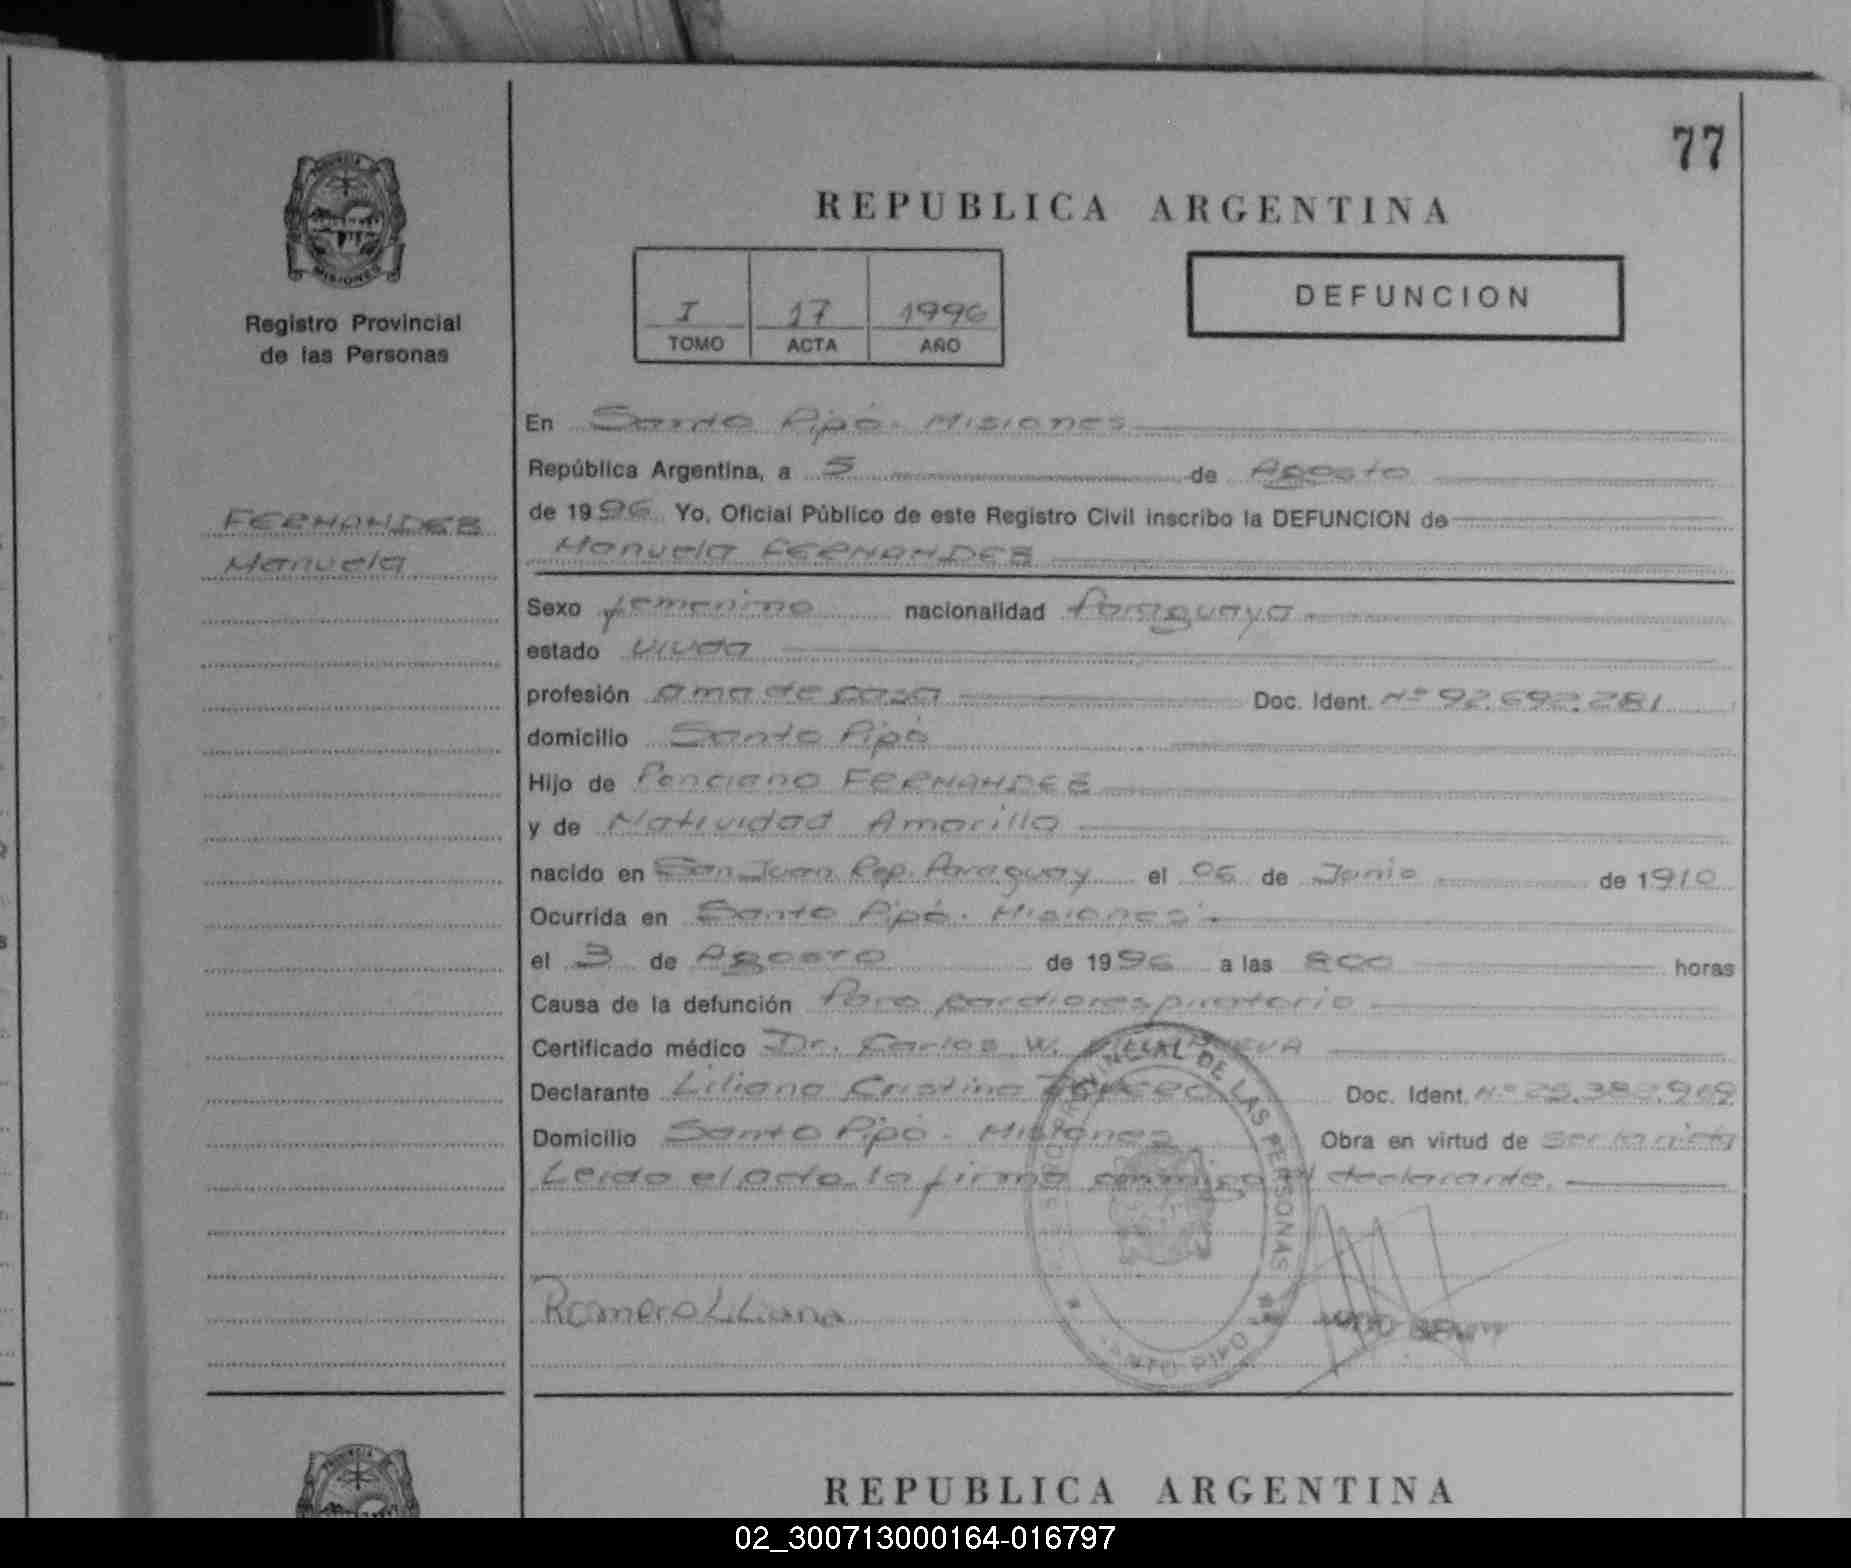 77
PROVINCIA
MISIONES
REPUBLICA ARGENTINA
I 17 1996
TOMO ACTA AÑO
DEFUNCION
Registro Provincial
de las Personas
FERNANDEZ
Manuela
En Santo Pipó. Misiones
República Argentina, a 5 de Agosto
de 1996 Yo, Oficial Público de este Registro Civil inscribo la DEFUNCION de
Manuela FERNANDEZ
Sexo femenino nacionalidad Paraguaya
estado viuda
profesión ama de casa Doc. Ident. Nº 92.692.281
domicilio Santo Pipó
Hijo de Ponciano FERNANDEZ
y de Natividad Amarilla
nacido en San Juan Rep. Paraguay el 06 de Junio de 1910
Ocurrida en Santo Pipó. Misiones.
el 3 de Agosto de 1996 a las 800 horas
Causa de la defunción Paro cardiorespiratorio
Certificado médico Dr. Carlos W.
Declarante Liliana Cristina Doc. Ident. Nº
Domicilio Santo Pipó. Misiones Obra en virtud de ser la nieta
Leido el acta la firma conmigo el declarante.
PROVINCIAL DE LAS PERSONAS
SANTO PIPO
Romero Liliana
PROVINCIA
REPUBLICA ARGENTINA
02_300713000164-016797